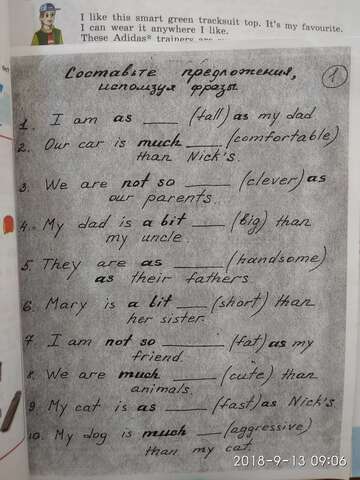 I like this smart green tracksuit top. It's my favourite.
I can wear it anywhere I like.
These Adidas* trainers are
Составьте предложения, 1
используя фразы.
1. I am as ___ (tall) as my dad
2. Our car is much ___ (comfortable)
than Nick's.
3. We are not so ___ (clever) as
our parents.
4. My dad is a bit ___ (big) than
my uncle.
5. They are as ___ (handsome)
as their fathers.
6. Mary is a bit ___ (short) than
her sister.
7. I am not so ___ (fat) as my
friend.
8. We are much ___ (cute) than
animals.
9. My cat is as ___ (fast) as Nick's.
10. My dog is much ___ (aggressive)
than my cat.
2018-9-13 09:06